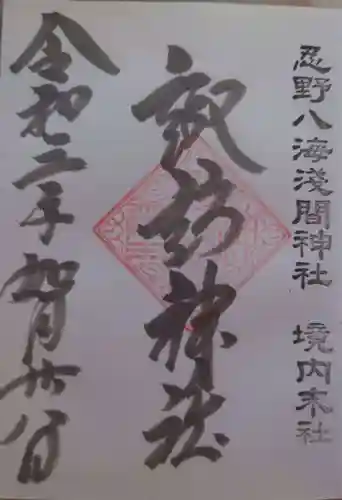 忍野八海淺間神社 境内末社
諏訪神社
令和二年如月廿八日